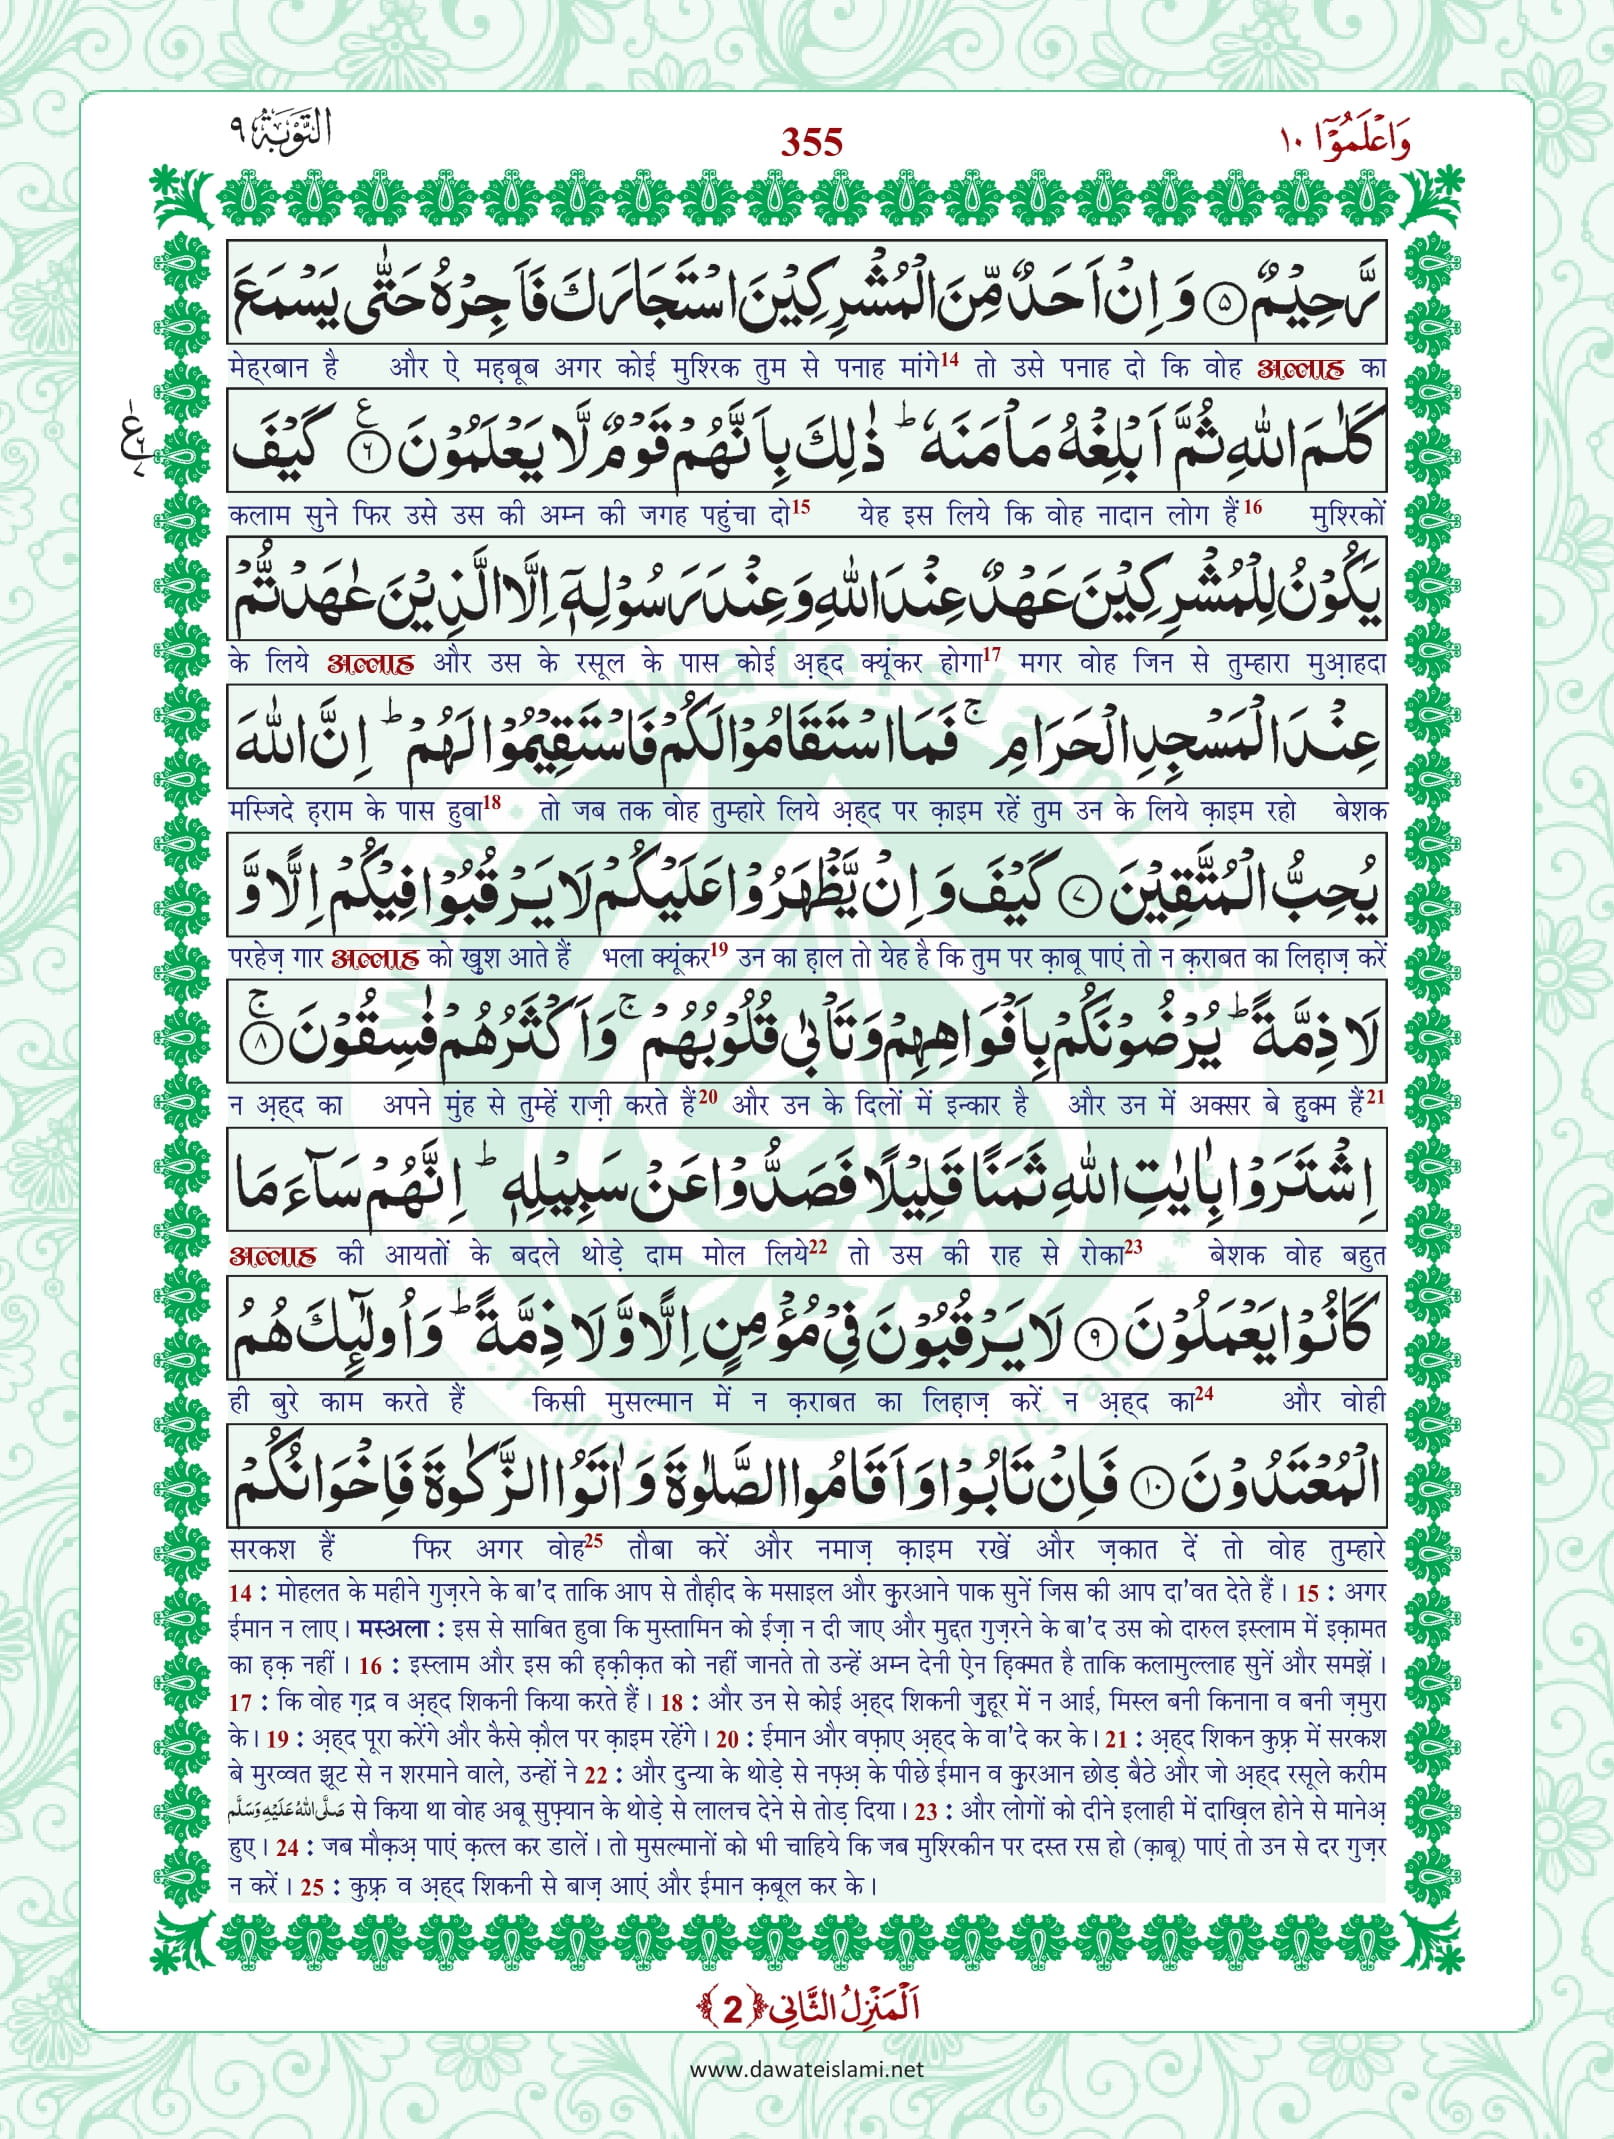 التَّوْبَة ٩
355
وَاعْلَمُوْٓا ١٠
رَّحِيْمٌ ۝٥ وَ اِنْ اَحَدٌ مِّنَ الْمُشْرِكِيْنَ اسْتَجَارَكَ فَاَجِرْهُ حَتّٰى يَسْمَعَ
मेह्‌रबान है और ऐ मह़बूब अगर कोई मुश्रिक तुम से पनाह मांगे14 तो उसे पनाह दो कि वोह अल्लाह का
كَلٰمَ اللّٰهِ ثُمَّ اَبْلِغْهُ مَاْمَنَهٗ ؕ ذٰلِكَ بِاَنَّهُمْ قَوْمٌ لَّا يَعْلَمُوْنَ ۝٦ ع كَيْفَ
कलाम सुने फिर उसे उस की अम्न की जगह पहुंचा दो15 येह इस लिये कि वोह नादान लोग हैं16 मुश्रिकों
يَكُوْنُ لِلْمُشْرِكِيْنَ عَهْدٌ عِنْدَ اللّٰهِ وَ عِنْدَ رَسُوْلِهٖۤ اِلَّا الَّذِيْنَ عٰهَدْتُّمْ
के लिये अल्लाह और उस के रसूल के पास कोई अ़ह्‌द क्यूंकर होगा17 मगर वोह जिन से तुम्हारा मुआ़हदा
عِنْدَ الْمَسْجِدِ الْحَرَامِ ۚ فَمَا اسْتَقَامُوْا لَكُمْ فَاسْتَقِيْمُوْا لَهُمْ ؕ اِنَّ اللّٰهَ
मस्जिदे ह़राम के पास हुवा18 तो जब तक वोह तुम्हारे लिये अ़ह्‌द पर क़ाइम रहें तुम उन के लिये क़ाइम रहो बेशक
يُحِبُّ الْمُتَّقِيْنَ ۝٧ كَيْفَ وَ اِنْ يَّظْهَرُوْا عَلَيْكُمْ لَا يَرْقُبُوْا فِيْكُمْ اِلًّا وَّ
परहेज़ गार अल्लाह को खुश आते हैं भला क्यूंकर19 उन का ह़ाल तो येह है कि तुम पर क़ाबू पाएं तो न क़राबत का लिह़ाज़ करें
لَا ذِمَّةً ؕ يُرْضُوْنَكُمْ بِاَفْوَاهِهِمْ وَ تَاْبٰى قُلُوْبُهُمْ ۚ وَ اَكْثَرُهُمْ فٰسِقُوْنَ ۝٨ ۚ
न अ़ह्‌द का अपने मुंह से तुम्हें राज़ी करते हैं20 और उन के दिलों में इन्कार है और उन में अक्सर बे हुक्म हैं21
اِشْتَرَوْا بِاٰيٰتِ اللّٰهِ ثَمَنًا قَلِيْلًا فَصَدُّوْا عَنْ سَبِيْلِهٖ ؕ اِنَّهُمْ سَآءَ مَا
अल्लाह की आयतों के बदले थोड़े दाम मोल लिये22 तो उस की राह से रोका23 बेशक वोह बहुत
كَانُوْا يَعْمَلُوْنَ ۝٩ لَا يَرْقُبُوْنَ فِيْ مُؤْمِنٍ اِلًّا وَّ لَا ذِمَّةً ؕ وَ اُولٰٓئِكَ هُمُ
ही बुरे काम करते हैं किसी मुसल्मान में न क़राबत का लिह़ाज़ करें न अ़ह्‌द का24 और वोही
الْمُعْتَدُوْنَ ۝١٠ فَاِنْ تَابُوْا وَ اَقَامُوا الصَّلٰوةَ وَ اٰتَوُا الزَّكٰوةَ فَاِخْوَانُكُمْ
सरकश हैं फिर अगर वोह25 तौबा करें और नमाज़ क़ाइम रखें और ज़कात दें तो वोह तुम्हारे
14 : मोहलत के महीने गुज़रने के बा'द ताकि आप से तौह़ीद के मसाइल और कुरआने पाक सुनें जिस की आप दा'वत देते हैं। 15 : अगर
ईमान न लाए। मस्अला : इस से साबित हुवा कि मुस्तामिन को ईज़ा न दी जाए और मुद्दत गुज़रने के बा'द उस को दारुल इस्लाम में इक़ामत
का ह़क़ नहीं। 16 : इस्लाम और इस की ह़क़ीक़त को नहीं जानते तो उन्हें अम्न देनी ऐन ह़िक्मत है ताकि कलामुल्लाह सुनें और समझें।
17 : कि वोह ग़द्र व अ़ह्‌द शिकनी किया करते हैं। 18 : और उन से कोई अ़ह्‌द शिकनी जुहूर में न आई, मिस्ल बनी किनाना व बनी ज़मुरा
के। 19 : अ़ह्‌द पूरा करेंगे और कैसे क़ौल पर क़ाइम रहेंगे। 20 : ईमान और वफ़ाए अ़ह्‌द के वा'दे कर के। 21 : अ़ह्‌द शिकन कुफ़्र में सरकश
बे मुरव्वत झूट से न शरमाने वाले, उन्हों ने 22 : और दुन्या के थोड़े से नफ़्अ़ के पीछे ईमान व कुरआन छोड़ बैठे और जो अ़ह्‌द रसूले करीम
صَلَّى اللهُ عَلَيْهِ وَسَلَّم से किया था वोह अबू सुफ़्यान के थोड़े से लालच देने से तोड़ दिया। 23 : और लोगों को दीने इलाही में दाख़िल होने से मानेअ़
हुए। 24 : जब मौक़अ़ पाएं क़त्ल कर डालें। तो मुसल्मानों को भी चाहिये कि जब मुश्रिकीन पर दस्त रस हो (क़ाबू) पाएं तो उन से दर गुज़र
न करें। 25 : कुफ़्र व अ़ह्‌द शिकनी से बाज़ आएं और ईमान क़बूल कर के।
اَلْمَنْزِلُ الثَّانِي ﴿2﴾
www.dawateislami.net